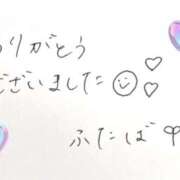 りがとう
ございました
ふたば